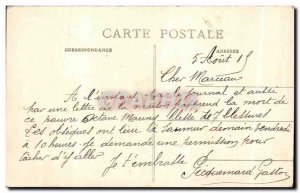 CARTE POSTALE
CORRESPONDANCE
ADRESSE
5 Août 15
Cher Marceau
A l'instant par le journal et aussi
par une lettre de la maison j'apprend la mort de
ce pauvre Octave Mauny de blessures
Les obsèques ont lieu à Saumur demain Vendredi
à 10 heures. Je demande une permission pour
tâcher d'y aller
Je t'embrasse
Gaston